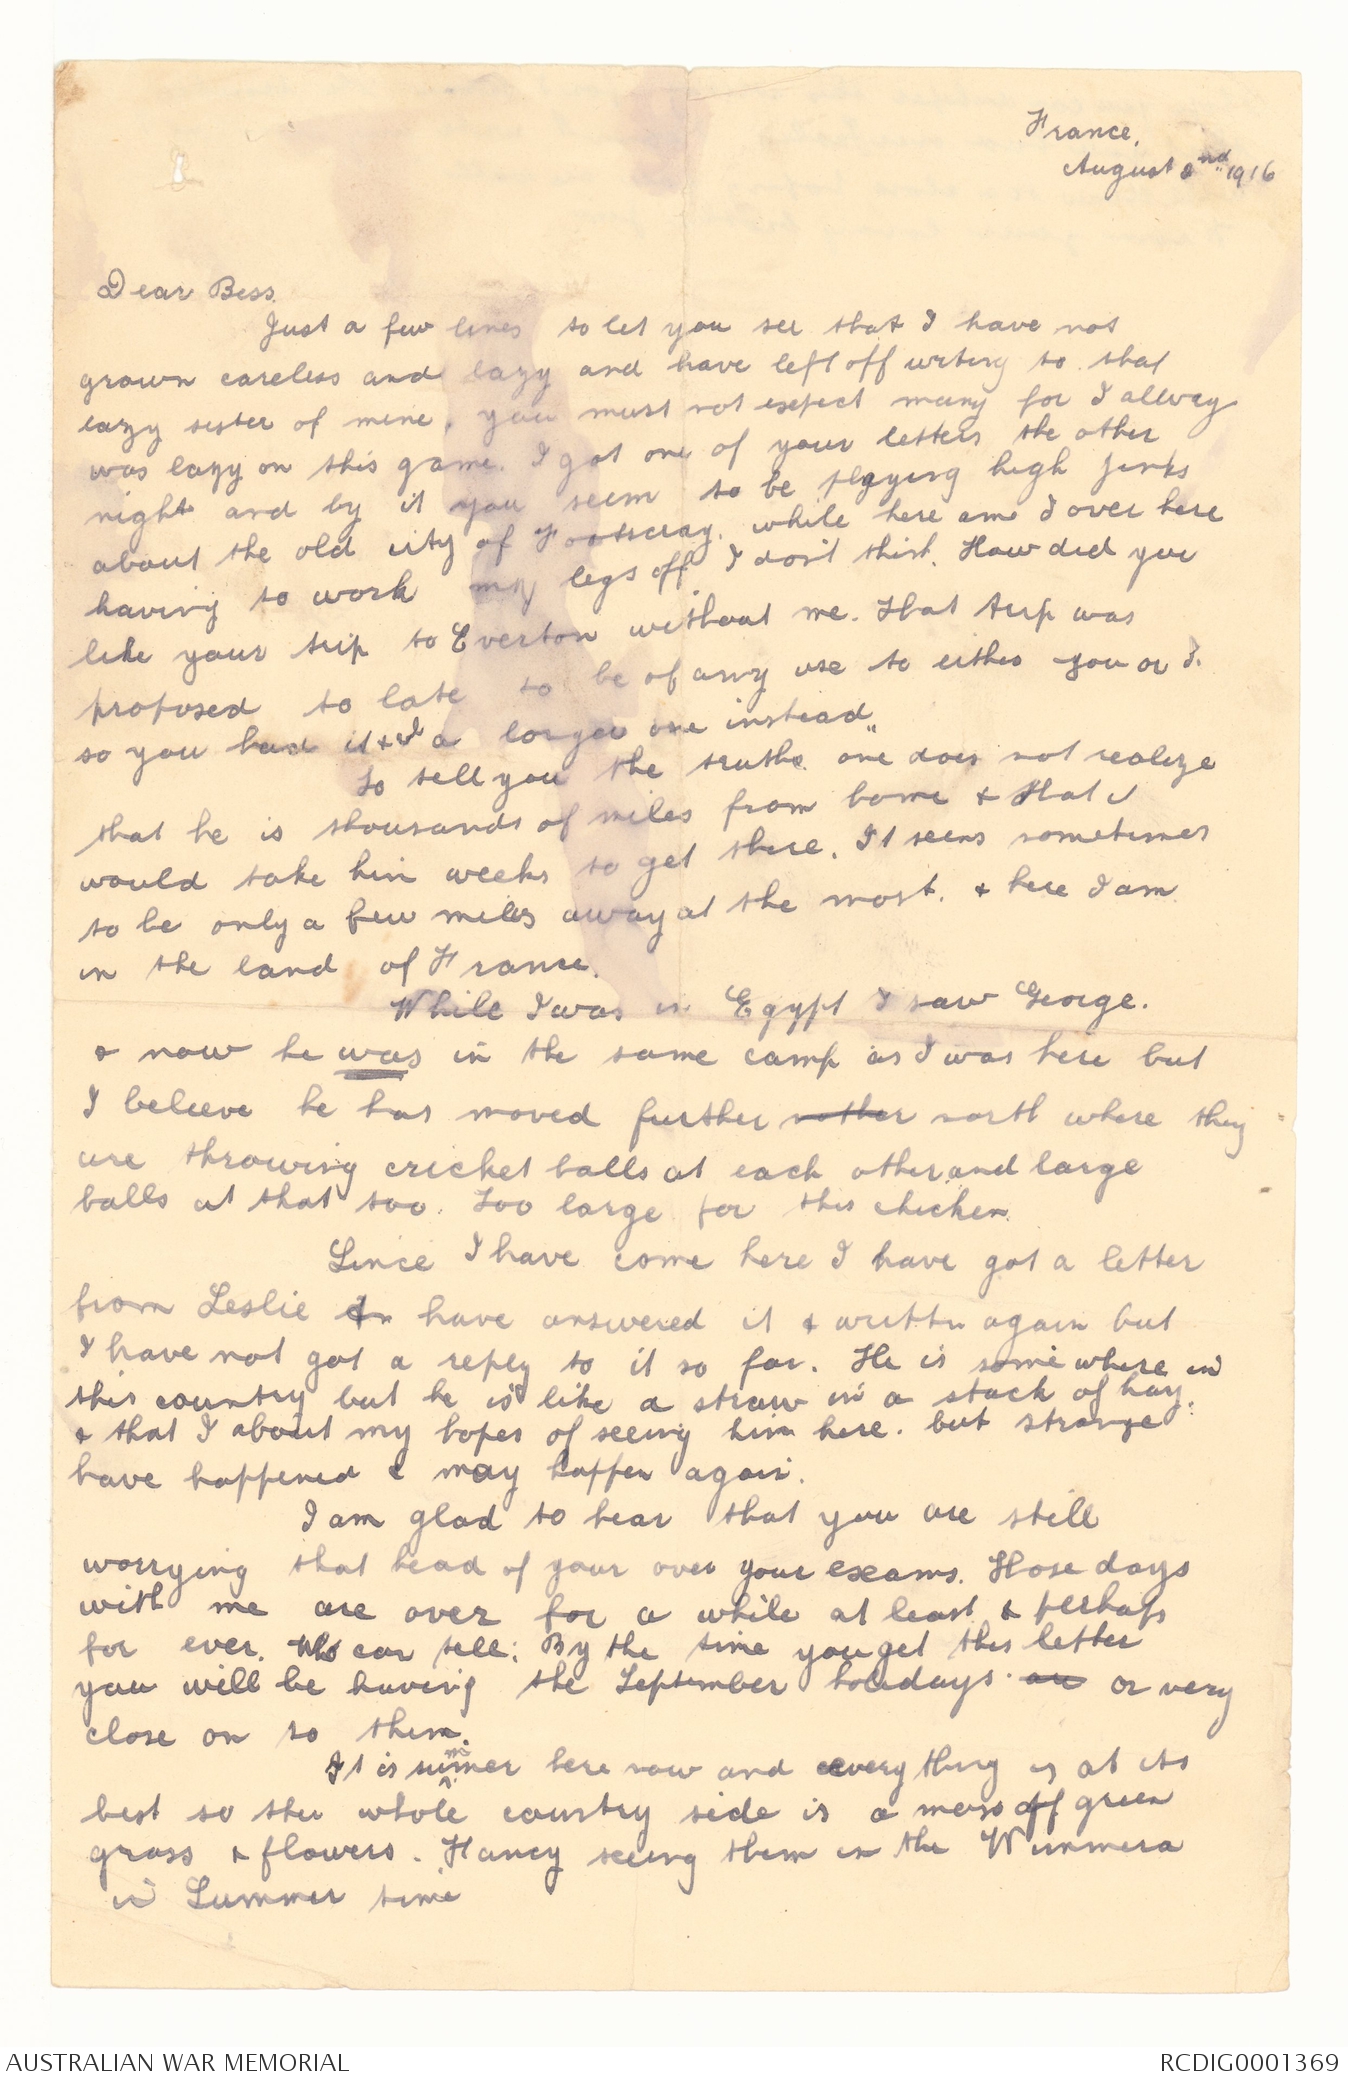 France,
August 2nd 1916
Dear Bess.
Just a few lines to let you see that I have not
grown careless and lazy and have left off writing to that
lazy sister of mine, you must not expect many for I allway
was lazy on this game. I got one of your letters the other
night and by it you seem to be playing high jinks
about the old city of Footscray, while here am I over here
having to work my legs off I don't think. How did you
like your trip to Everton without me. That trip was
proposed to late to be of any use to either you or I.
so you had it & I a longer one instead"
To tell you the truth one does not realize
that he is thousands of miles from home & that it
would take him weeks to get there. It seems sometimes
to be only a few miles away at the most. & here I am
in the land of France.
While I was in Egypt I saw George.
& now he was in the same camp as I was here but
I believe he has moved further nother north where they
are throwing cricket balls at each other, and large
balls at that too. Too large for this chicken.
Since I have come here I have got a letter
from Leslie have answered it & written again but
I have not got a reply to it so far. He is somewhere in
this country but he is like a straw in a stack of hay.
& that I about my hopes of seeing him here. but strange
have happened & may happen again.
I am glad to hear that you are still
worrying that head of your over your exams. Those days
with me are over for a while at least & perhaps
for ever. Who can tell; By the time you get this letter
you will be having the September holidays or very
close on to them.
It is summer here now and everything is at its
best so the whole country side is a mass off green
grass & flowers. Fancy seeing them in the Wimmera
in Summer time
AUSTRALIAN WAR MEMORIAL
RCDIG0001369